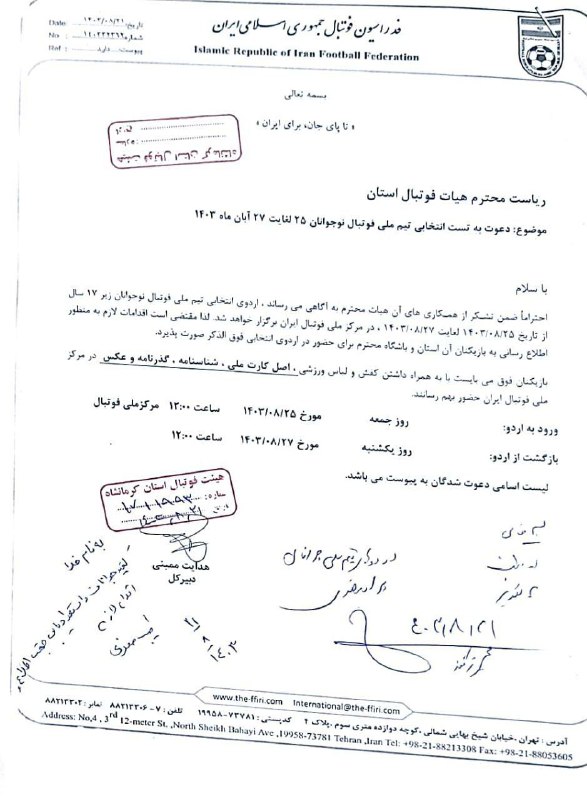 فدراسیون فوتبال جمهوری اسلامی ایران
Islamic Republic of Iran Football Federation
Date تاریخ: ۱۴۰۳/۰۸/۲۱
No شماره:
Ref پیوست: ندارد
بسمه تعالی
« تا پای جان، برای ایران »
هیئت فوتبال استان کرمانشاه
شماره:
تاریخ:
ریاست محترم هیات فوتبال استان
موضوع: دعوت به تست انتخابی تیم ملی فوتبال نوجوانان ۲۵ لغایت ۲۷ آبان ماه ۱۴۰۳
با سلام
احتراماً ضمن تشکر از همکاری های آن هیات محترم به آگاهی می رساند ، اردوی انتخابی تیم ملی فوتبال نوجوانان زیر ۱۷ سال
از تاریخ ۱۴۰۳/۰۸/۲۵ لغایت ۱۴۰۳/۰۸/۲۷ ، در مرکز ملی فوتبال ایران برگزار خواهد شد. لذا مقتضی است اقدامات لازم به منظور
اطلاع رسانی به بازیکنان آن استان و باشگاه محترم برای حضور در اردوی انتخابی فوق الذکر صورت پذیرد.
بازیکنان فوق می بایست با به همراه داشتن کفش و لباس ورزشی ، اصل کارت ملی ، شناسنامه ، گذرنامه و عکس در مرکز
ملی فوتبال ایران حضور بهم رسانند.
ورود به اردو: روز جمعه مورخ ۱۴۰۳/۰۸/۲۵ ساعت ۱۳:۰۰ مرکزملی فوتبال
بازگشت از اردو: روز یکشنبه مورخ ۱۴۰۳/۰۸/۲۷ ساعت ۱۲:۰۰
لیست اسامی دعوت شدگان به پیوست می باشد.
هیئت فوتبال استان کرمانشاه
شماره:
تاریخ:
هدایت ممبینی
دبیرکل
به نام خدا
۱۴۰۳/۸/۲۱
www.the-ffiri.com International@the-ffiri.com
آدرس : تهران ،خیابان شیخ بهایی شمالی ،کوچه دوازده متری سوم ،پلاک ۴ کدپستی: ۷۳۷۸۱-۱۹۹۵۸ تلفن: ۷-۸۸۲۱۳۳۰۶ نمابر: ۸۸۲۱۳۳۰۲
Address: No,4 , 3rd 12-meter St. ,North Sheikh Bahayi Ave ,19958-73781 Tehran ,Iran Tel: +98-21-88213308 Fax: +98-21-88053605